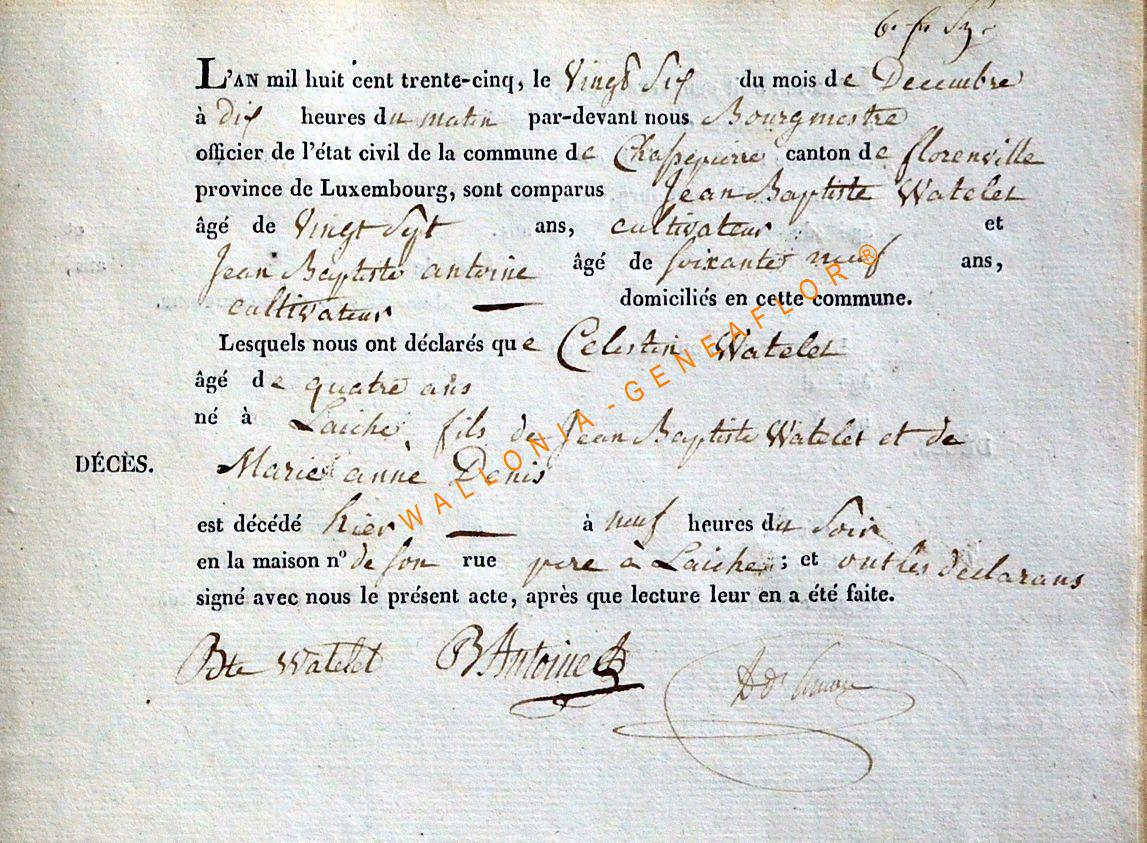 L'AN mil huit cent trente-cinq, le Vingt Six du mois de Decembre
à dix heures du matin par-devant nous Bourgmestre
officier de l'état civil de la commune de Chassepierre canton de florenville
province de Luxembourg, sont comparus Jean Baptiste Watelet
âgé de Vingt Sept ans, cultivateur et
Jean Baptiste antoine âgé de soixante neuf ans,
cultivateur — domiciliés en cette commune.
Lesquels nous ont déclarés que Celestin Watelet
âgé de quatre ans
né à Laiche, fils de Jean Baptiste Watelet et de
DÉCÈS. Marie anne Denis
est décédé hier — à neuf heures du Soir
en la maison n° de son rue pere à Laiche ; et ont les declarans
signé avec nous le présent acte, après que lecture leur en a été faite.
Bte Watelet B Antoine
WALLONIA - GENEAFLOR ®